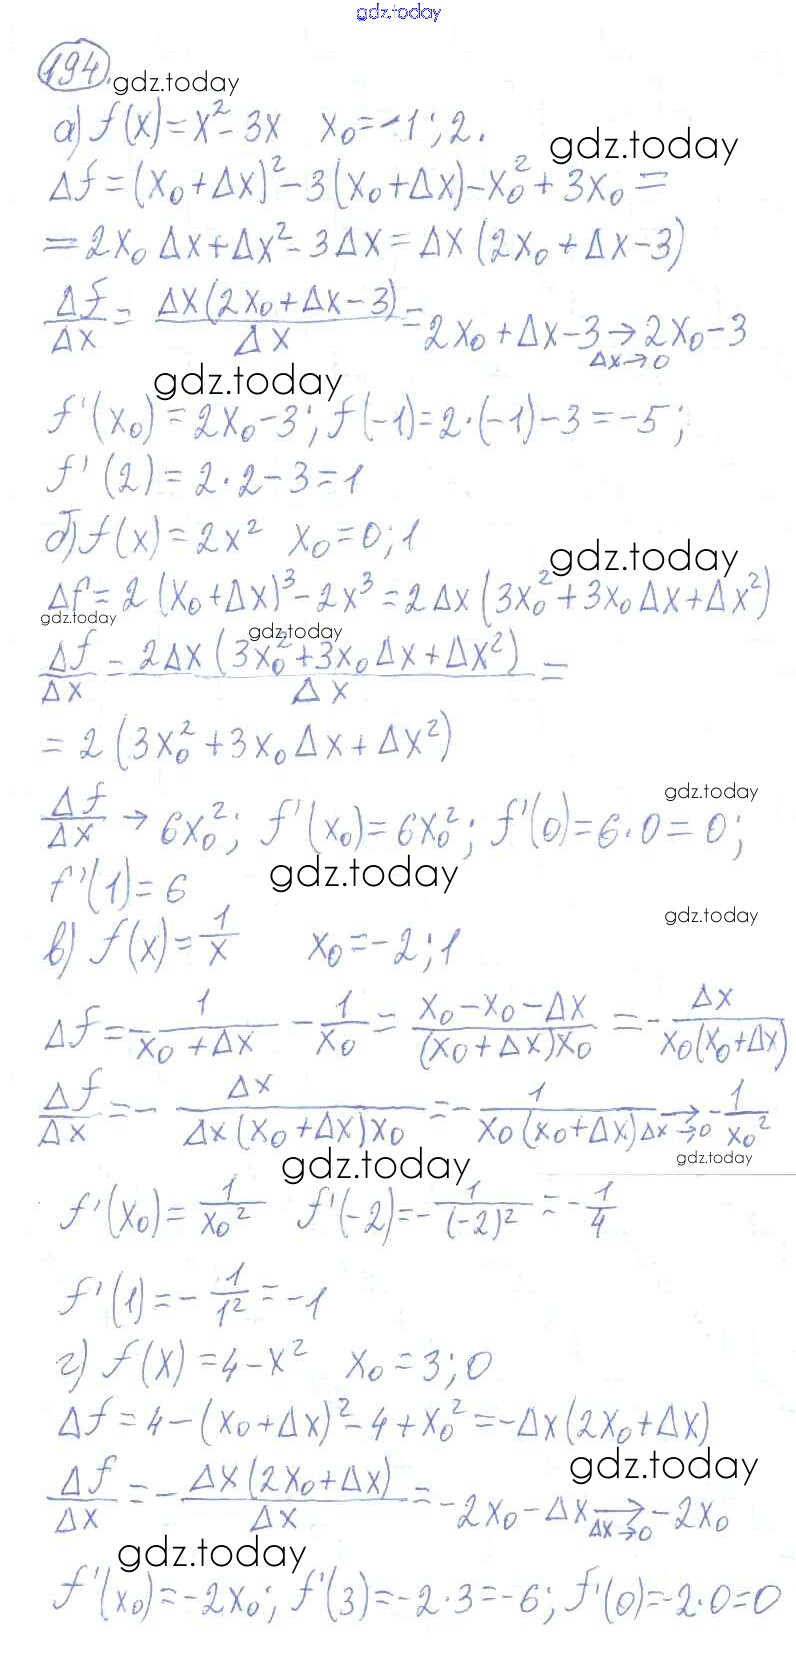 gdz.today
194. gdz.today
а) f(x)=x²-3x   x₀=-1; 2.
gdz.today
Δf=(x₀+Δx)²-3(x₀+Δx)-x₀²+3x₀=
=2x₀Δx+Δx²-3Δx=Δx(2x₀+Δx-3)
Δf/Δx = Δx(2x₀+Δx-3)/Δx = 2x₀+Δx-3 → 2x₀-3
Δx→0
gdz.today
f'(x₀)=2x₀-3; f(-1)=2·(-1)-3=-5;
f'(2)=2·2-3=1
б) f(x)=2x²   x₀=0; 1
gdz.today
Δf=2(x₀+Δx)³-2x³=2Δx(3x₀²+3x₀Δx+Δx²)
gdz.today
gdz.today
Δf/Δx = 2Δx(3x₀²+3x₀Δx+Δx²)/Δx =
=2(3x₀²+3x₀Δx+Δx²)
gdz.today
Δf/Δx → 6x₀²; f'(x₀)=6x₀²; f'(0)=6·0=0;
f'(1)=6 gdz.today
gdz.today
в) f(x)=1/x   x₀=-2; 1
Δf = 1/(x₀+Δx) - 1/x₀ = (x₀-x₀-Δx)/((x₀+Δx)x₀) = -Δx/(x₀(x₀+Δx))
Δf/Δx = -Δx/(Δx(x₀+Δx)x₀) = -1/(x₀(x₀+Δx)) → -1/x₀²
Δx→0
gdz.today
gdz.today
f'(x₀)=1/x₀²   f'(-2)=-1/(-2)²=-1/4
f'(1)=-1/1²=-1
г) f(x)=4-x²   x₀=3; 0
Δf=4-(x₀+Δx)²-4+x₀²=-Δx(2x₀+Δx)
gdz.today
Δf/Δx = -Δx(2x₀+Δx)/Δx = -2x₀-Δx → -2x₀
Δx→0
gdz.today
f'(x₀)=-2x₀; f'(3)=-2·3=-6; f'(0)=-2·0=0